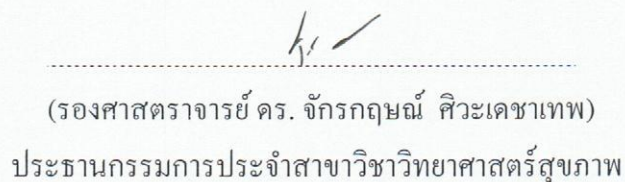 (รองศาสตราจารย์ ดร. จักรกฤษณ์ ศิวะเดชาเทพ)
ประธานกรรมการประจำสาขาวิชาวิทยาศาสตร์สุขภาพ